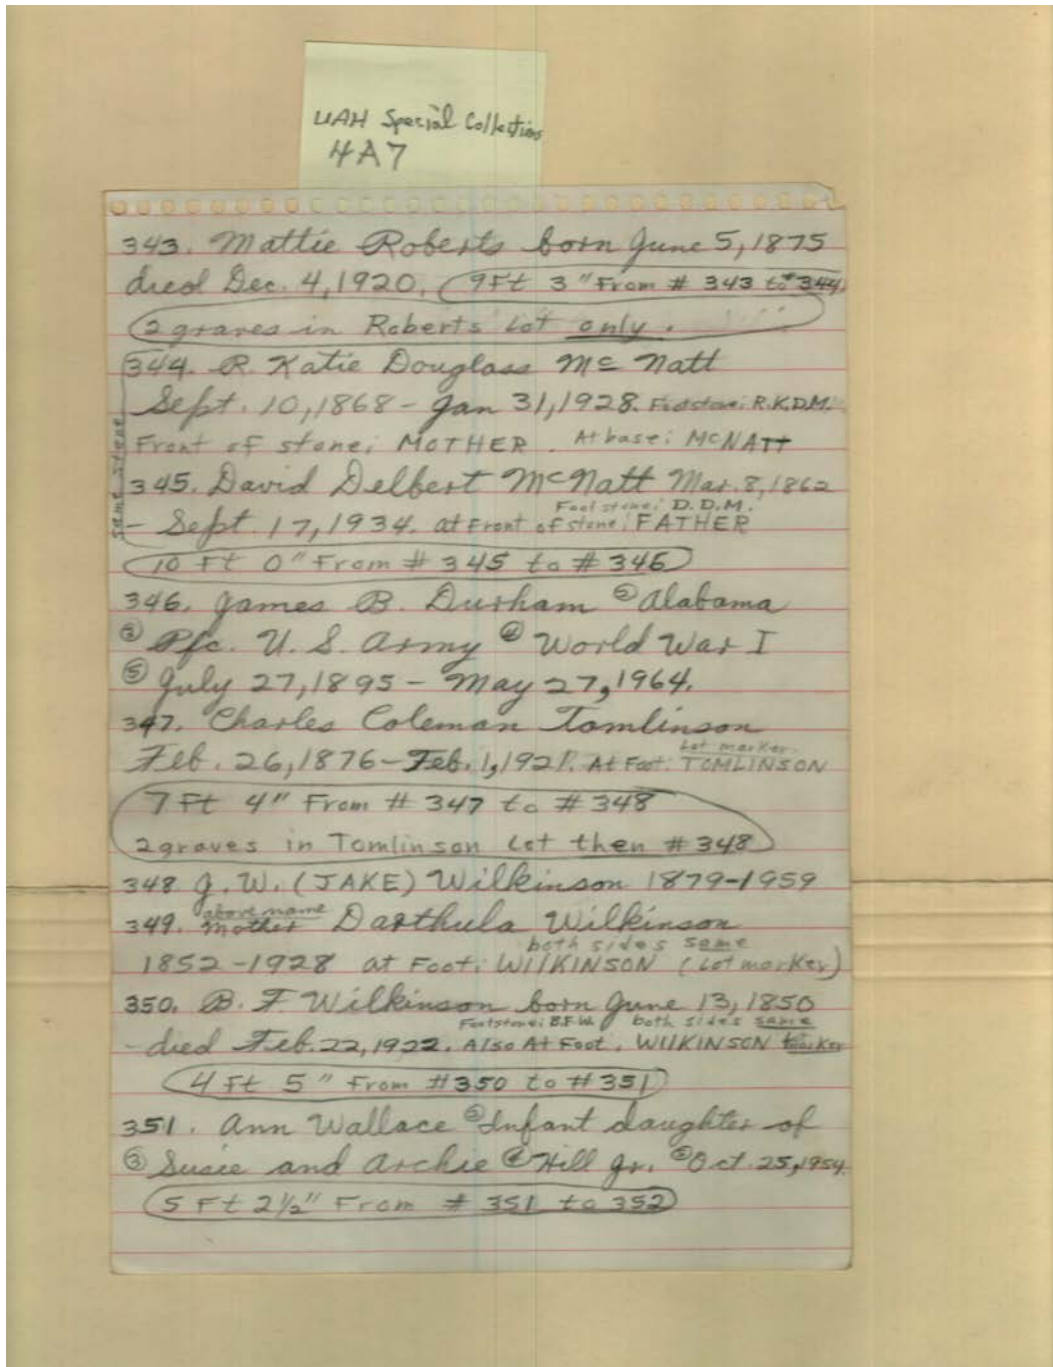 UAH Special Collections
4A7
343. Mattie Roberts born June 5, 1875
died Dec. 4, 1920. 9Ft 3" From # 343 to #344.
2 graves in Roberts Lot only.
344. R. Katie Douglass Mc Natt
Sept. 10, 1868 - Jan 31, 1928. Footstone: R.K.D.M.
Front of stone: MOTHER. At base: McNATT
same stone
345. David Delbert McNatt Mar. 8, 1862
Foot stone: D.D.M.
- Sept. 17, 1934. at Front of stone: FATHER
10 Ft 0" From # 345 to # 346
346. James B. Durham ② Alabama
③ Pfc. U. S. Army ④ World War I
⑤ July 27, 1895 - May 27, 1964.
347. Charles Coleman Tomlinson
Lot marker
Feb. 26, 1876 - Feb. 1, 1921. At Foot: TOMLINSON
7 Ft 4" From # 347 to # 348
2 graves in Tomlinson Lot then # 348
348 J. W. (JAKE) Wilkinson 1879-1959
above name
349. Mother Darthula Wilkinson
both sides same
1852-1928 at Foot: WILKINSON (Lot marker)
350. B. F. Wilkinson born June 13, 1850
Footstone: B.F.W. both sides same
- died Feb. 22, 1922. Also At Foot, WILKINSON marker
4 Ft 5" From #350 to #351
351. Ann Wallace ② Infant daughter of
③ Susie and Archie ④ Hill Jr. ⑤ Oct. 25, 1954.
5 Ft 2½" From # 351 to 352